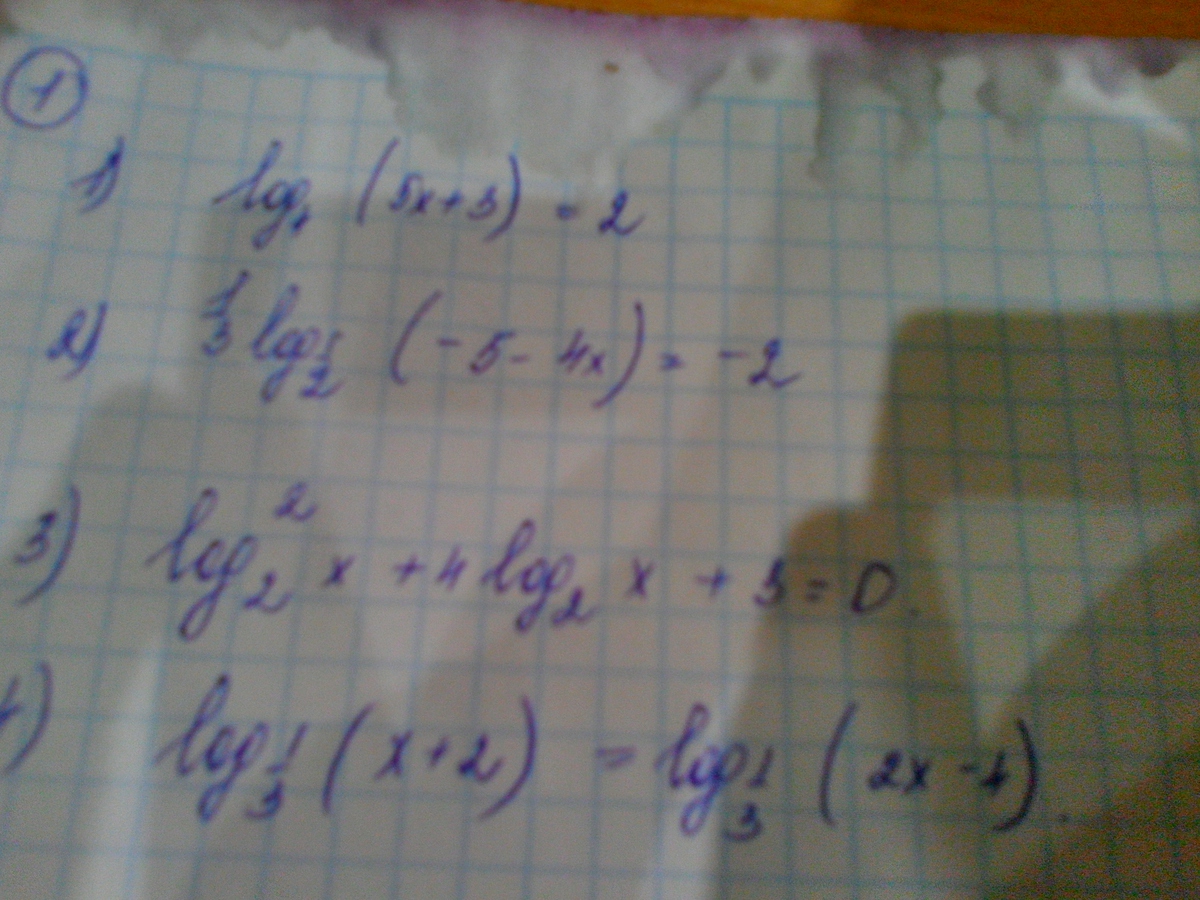 1
1) log (5x+3) = 2
2) log 1/2 (-5 - 4x) = -2
3) log₂² x + 4 log₂ x + 3 = 0.
log 1/3 (x+2) = log 1/3 (2x - 1).